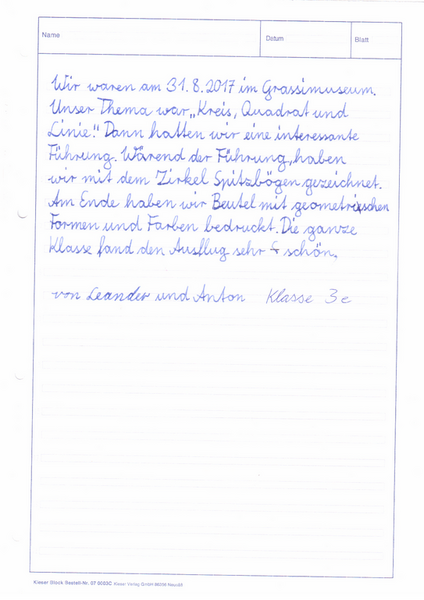 Name Datum Blatt
Wir waren am 31.8.2017 im Grassimuseum.
Unser Thema war „Kreis, Quadrat und
Linie“. Dann hatten wir eine interessante
Führung. Wärend der Führung, haben
wir mit dem Zirkel Spitzbögen gezeichnet.
Am Ende haben wir Beutel mit geometrischen
Formen und Farben bedruckt. Die ganze
Klasse fand den Ausflug sehr schön.
von Leander und Anton Klasse 3c
Kieser Block Bestell-Nr. 07 0003C Kieser Verlag GmbH 86356 Neusäß